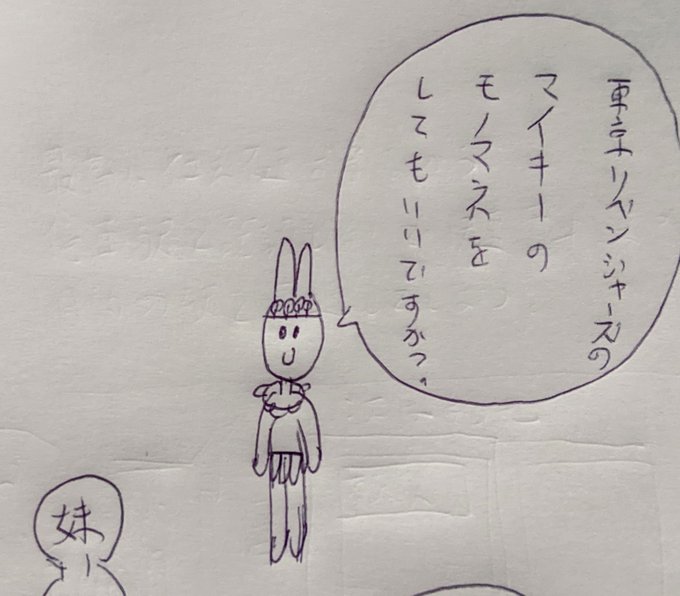 東京リベンジャーズの
マイキーの
モノマネを
してもいいですかっ。
妹